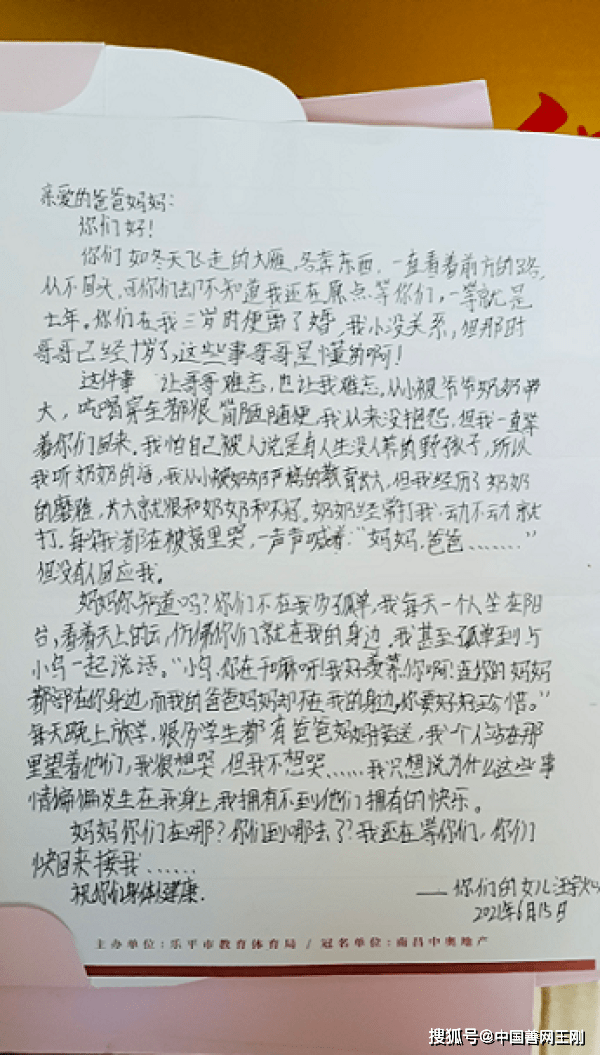 亲爱的爸爸妈妈:
你们好!
你们如冬天飞走的大雁,各奔东西,一直看着前方的路,
从不回头,可你们却不知道我还在原点等你们,一等就是
七年。你们在我三岁时便离了婚,我小没关系,但那时
哥哥已经十岁了,这些事哥哥是懂的啊!
这件事 让哥哥难忘,也让我难忘,从小被爷爷奶奶带
大,吃喝穿住都很简陋随便,我从来没抱怨,但我一直等
着你们回来。我怕自己被人说是有人生没人养的野孩子,所以
我听奶奶的话,我从小被奶奶严格的教育长大,但我经历了奶奶
的磨难,长大就很和奶奶和不好。奶奶经常打我,动不动就
打。每次我都在被窝里哭,一声声喊着:“妈妈,爸爸………”
但没有人回应我。
妈妈你知道吗?你们不在我多孤单,我每天一个人坐在阳
台,看着天上的云,仿佛你们就在我的身边。我甚至孤单到与
小鸟一起说话。“小鸟,你在干嘛呀!我好羡慕你啊!连你的妈妈
都都在你身边,而我的爸爸妈妈却不在我的身边,你要好好珍惜。”
每天晚上放学,很多学生都有爸爸妈妈接送,我一个人站在那
里望着他们,我很想哭,但我不想哭……我只想说为什么这些事
情偏偏发生在我身上,我拥有不到他们拥有的快乐。
妈妈你们在哪?你们到哪去了?我还在等你们,你们
快回来接我……
祝你们身体健康. ——你们的女儿汪
2021年6月15日
主办单位:乐平市教育体育局 / 冠名单位:南昌中奥地产
搜狐号@中国善网王刚